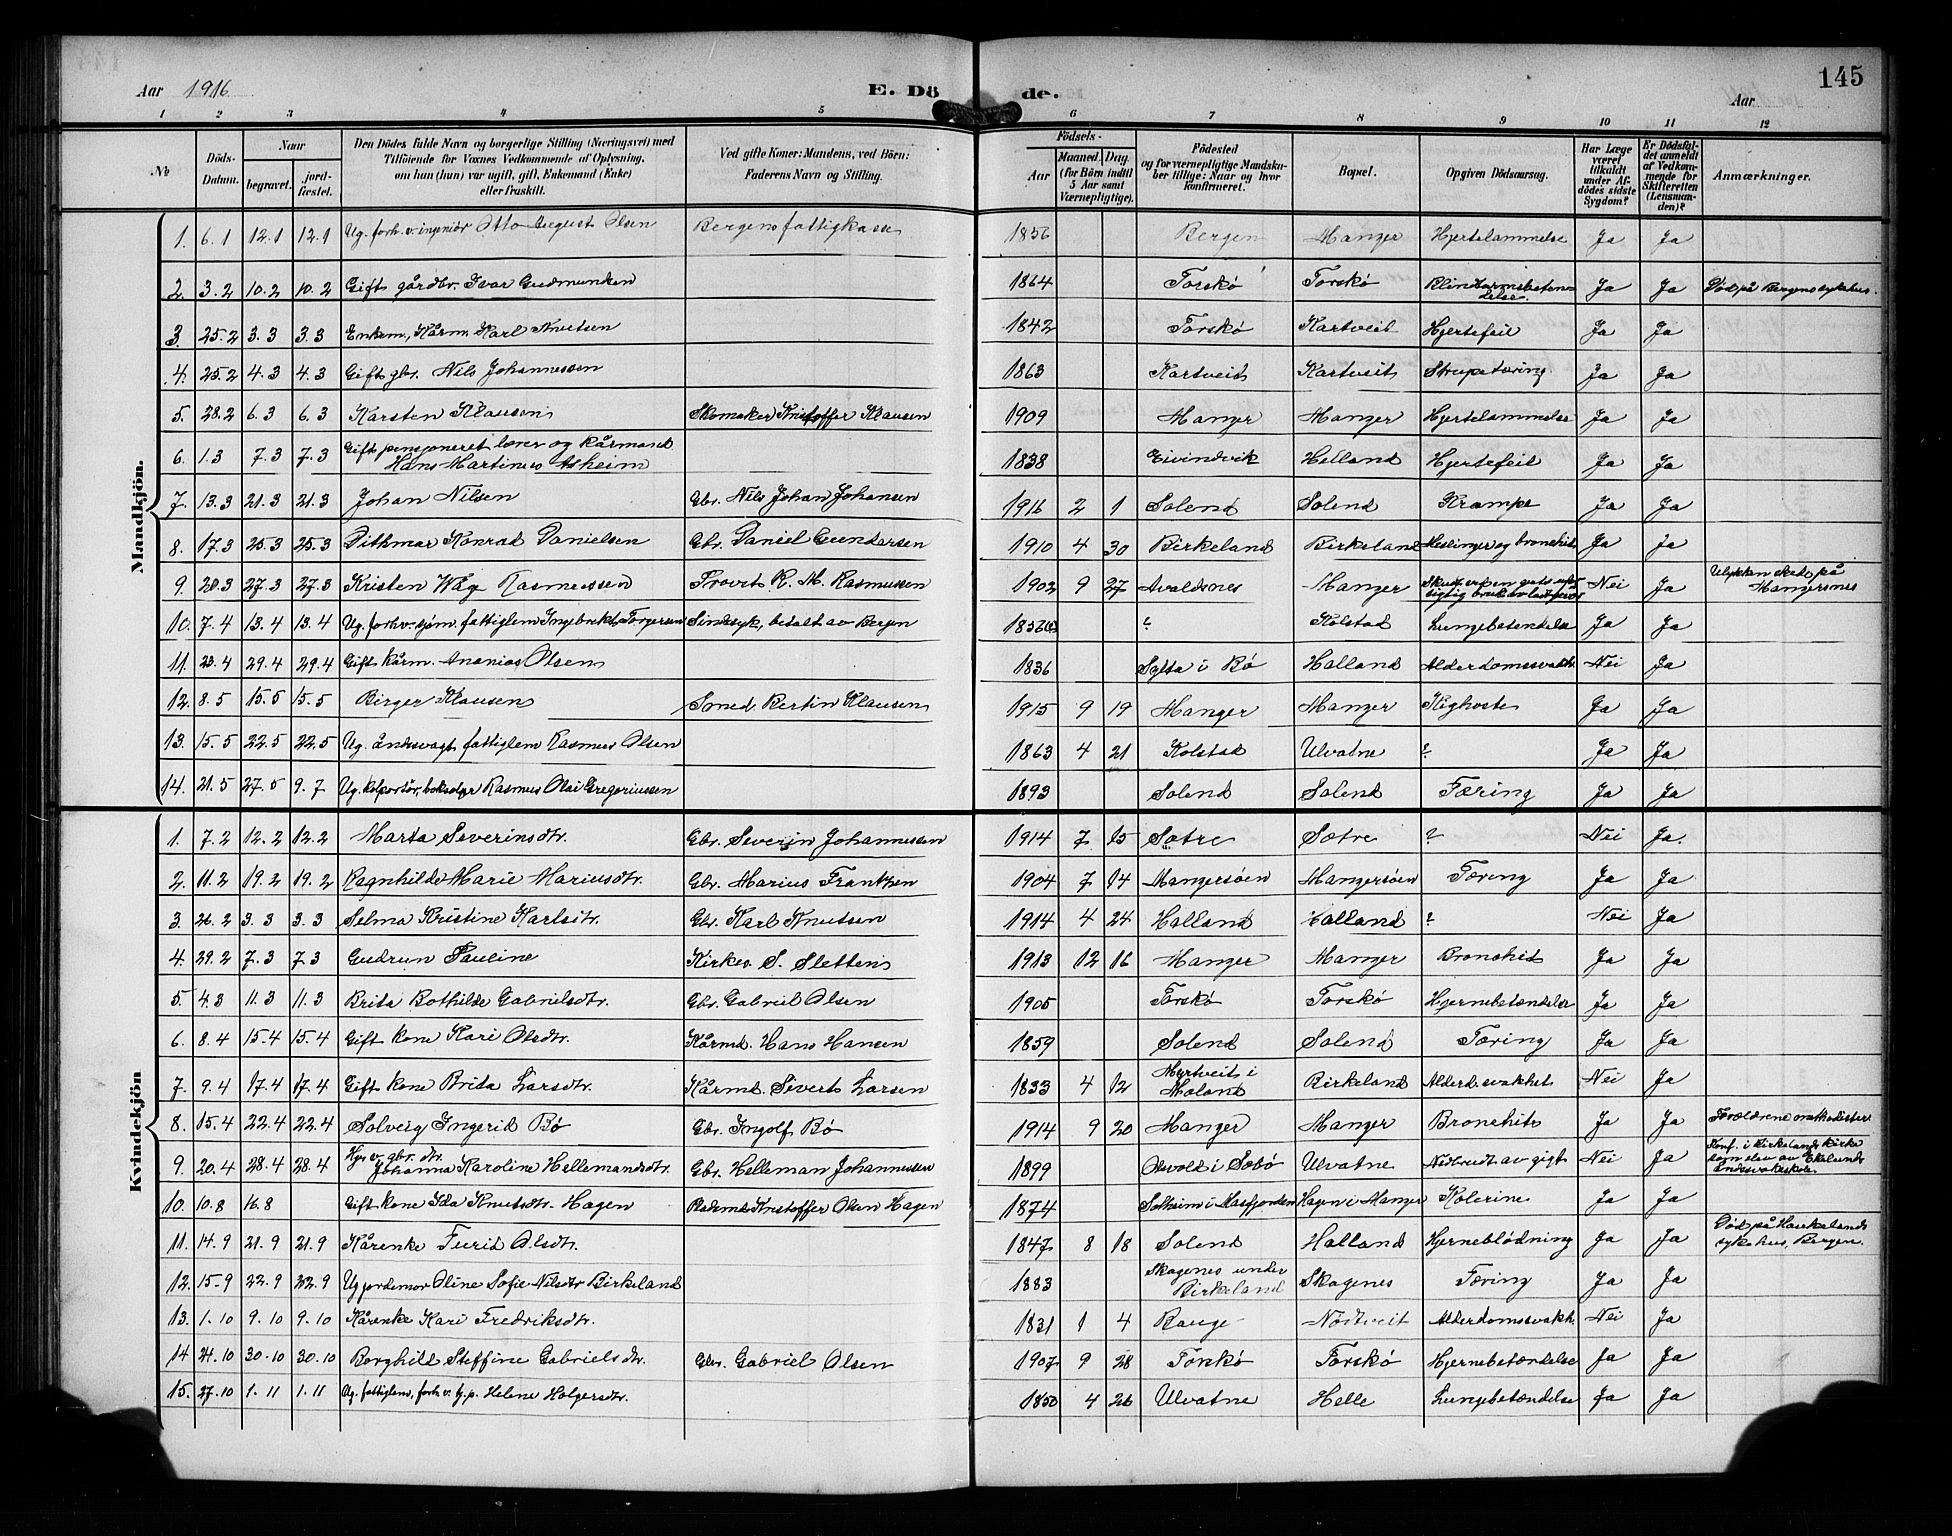 145
Aar 1916
E. Dö de.
Aar
1 2 3 4 5 6 7 8 9 10 11 12
No
Döds-Datum.
Naar
begravet.
jord-fæstet.
Den Dödes fulde Navn og borgerlige Stilling (Næringsvei) med Tilföiende for Voxnes Vedkommende af Oplysning, om han (hun) var ugift, gift, Enkemand (Enke) eller fraskilt.
Ved gifte Koner: Mandens, ved Börn: Faderens Navn og Stilling.
Födsels-
Aar
Maaned. Dag. (for Börn indtil 5 Aar samt Værnepligtige).
Födested og for værnepligtige Mandskaber tillige: Naar og hvor konfirmeret.
Bopæl.
Opgiven Dödsaarsag.
Har Læge været tilkaldt under Afdödes sidste Sygdom?
Er Dödsfaldet anmeldt af Vedkommende for Skifteretten (Lensmanden)?
Anmærkninger.
Mandkjön.
1. 6.1 12.1 12.1 Ug. forh.v. ingeniör Otto August Olsen Bergens fattigkasse 1856 Bergen Manger Hjertelammelse Ja Ja
2. 3.2 10.2 10.2 Gift gårdbr. Ivar Gudmundsen 1864 Torskö Torskö Blindtarmsbetendelse. Ja Ja Död på Bergens sykehus.
3. 25.2 3.3 3.3 Enkem., Kårm. Karl Knutsen 1842 Torskö Kartveit Hjertefeil Ja Ja
4. 25.2 4.3 4.3 Gift gbr. Nils Johannessen 1863 Kartveit Kartveit Strupetæring Ja Ja
5. 28.2 6.3 6.3 Karsten Klausen Skomaker Kristoffer Klausen 1909 Manger Manger Hjertelammelse Ja Ja
6. 1.3 7.3 7.3 Gift pensjoneret lærer og kårmand Hans Martinus Asheim 1838 Eivindvik Helland Hjertefeil Ja Ja
7. 13.3 21.3 21.3 Johan Nilsen Gbr. Nils Johan Johansen 1916 2 1 Solend Solend Krampe Ja Ja
8. 17.3 25.3 25.3 Dithmar Konrad Danielsen Gbr. Daniel Gundersen 1910 4 30 Birkeland Birkeland Meslinger og bronchit Ja Ja
9. 28.3 27.3 27.3 Kristen Våg Rasmussen Provst R. M. Rasmussen 1902 9 27 Avaldsnes Manger Nei Ja Ulykken skede på Mangersnes
10. 7.4 13.4 13.4 Ug. forhv. sjöm. fattiglem Ingebrikt Torgersen Sindssyk, betalt av Bergen ? Kolstad Lungebetendelse Ja Ja
11. 23.4 29.4 29.4 Gift kårm. Ananias Olsen 1836 Sylta i Bö Halland Alderdomssvakh. Nei Ja
12. 8.5 15.5 15.5 Birger Klausen Smed. Bertin Klausen 1915 9 19 Manger Manger Kighoste Ja Ja
13. 15.5 22.5 22.5 Ug. åndssvagt fattiglem Rasmus Olsen 1863 4 21 Kolstad Ulvatne ? Ja Ja
14. 21.5 27.5 9.7 Ug. kolportör, boksælger Rasmus Olai Gregoriussen 1893 Solend Solend Tæring Ja Ja
Kvindekjön
1. 7.2 12.2 12.2 Marta Severinsdtr. Gbr. Severin Johannessen 1914 7 15 Sætre Sætre ? Nei Ja.
2. 11.2 19.2 19.2 Ragnhilde Marie Mariusdtr. Gbr. Marius Frantzen 1904 7 14 Mangersöen Mangersöen Tæring Ja Ja
3. 26.2 3.3 3.3 Selma Kristine Karlsdtr. Gbr. Karl Knutsen 1914 4 24 Halland Halland ? Nei Ja
4. 29.2 7.3 7.3 Gudrun Pauline Kirkes. S. Sletten 1913 12 16 Manger Manger Bronchit Ja Ja
5. 4.3 11.3 11.3 Brita Bothilde Gabrielsdtr. Gbr. Gabriel Olsen 1905 Torskö Torskö Hjernebetændelse Ja Ja
6. 8.4 15.4 15.4 Gift kone Kari Olsdtr. Kårmd. Hans Hansen 1859 Solend Solend Tæring Ja Ja
7. 9.4 17.4 17.4 Gift kone Brita Larsdtr. Kårmd. Sivert Larsen 1833 4 12 Myrtveit i Moland Birkeland Alderd. svakhet Nei Ja
8. 15.4 22.4 22.4 Solveig Ingerid Bö Gbr. Ingolf Bö 1914 9 20 Manger Manger Bronchit Ja Ja Forældrene metodister
9. 20.4 28.4 28.4 Hjv. v. gbr. dtr. Johanna Karoline Hellemandsdtr. Gbr. Helleman Johannessen 1899 Osvold i Sæbö Ulvatne Nedbrudt av gigt Nei Ja Konf. i Birkelands kirke som elev av Eklunds åndssvakeskole
10. 10.8 16.8 Gift kone Ida Knutsdtr. Hagen Kristoffer Olsen Hagen 1874 Solheim i Masfjorden Hagen i Manger Kolerine Ja Ja
11. 14.9 21.9 21.9 Kårenke Turid Olsdtr. 1847 8 18 Solend Halland Hjerneblödning Ja Ja Död på Haukelands sykehus, Bergen.
12. 15.9 22.9 22.9 Ug jordemor Oline Sofie Nilsdtr Birkeland 1883 Skagenes under Birkeland Skagenes Tæring Ja Ja
13. 1.10 9.10 9.10 Kårenke Kari Fredriksdtr. 1831 1 4 Bauge Nödtveit Alderdomssvakh. Nei Ja
14 21.10 30.10 30.10 Borghild Steffine Gabrielsdtr. Gbr. Gabriel Olsen 1907 9 28 Torskö Torskö Hjernebetændelse Ja Ja
15. 27.10 1.11 1.11 Ug. fattiglem, forh.v. tj.p. Helene Holgersdtr. 1850 4 26 Ulvatne Helle Lungebetændelse Ja Ja